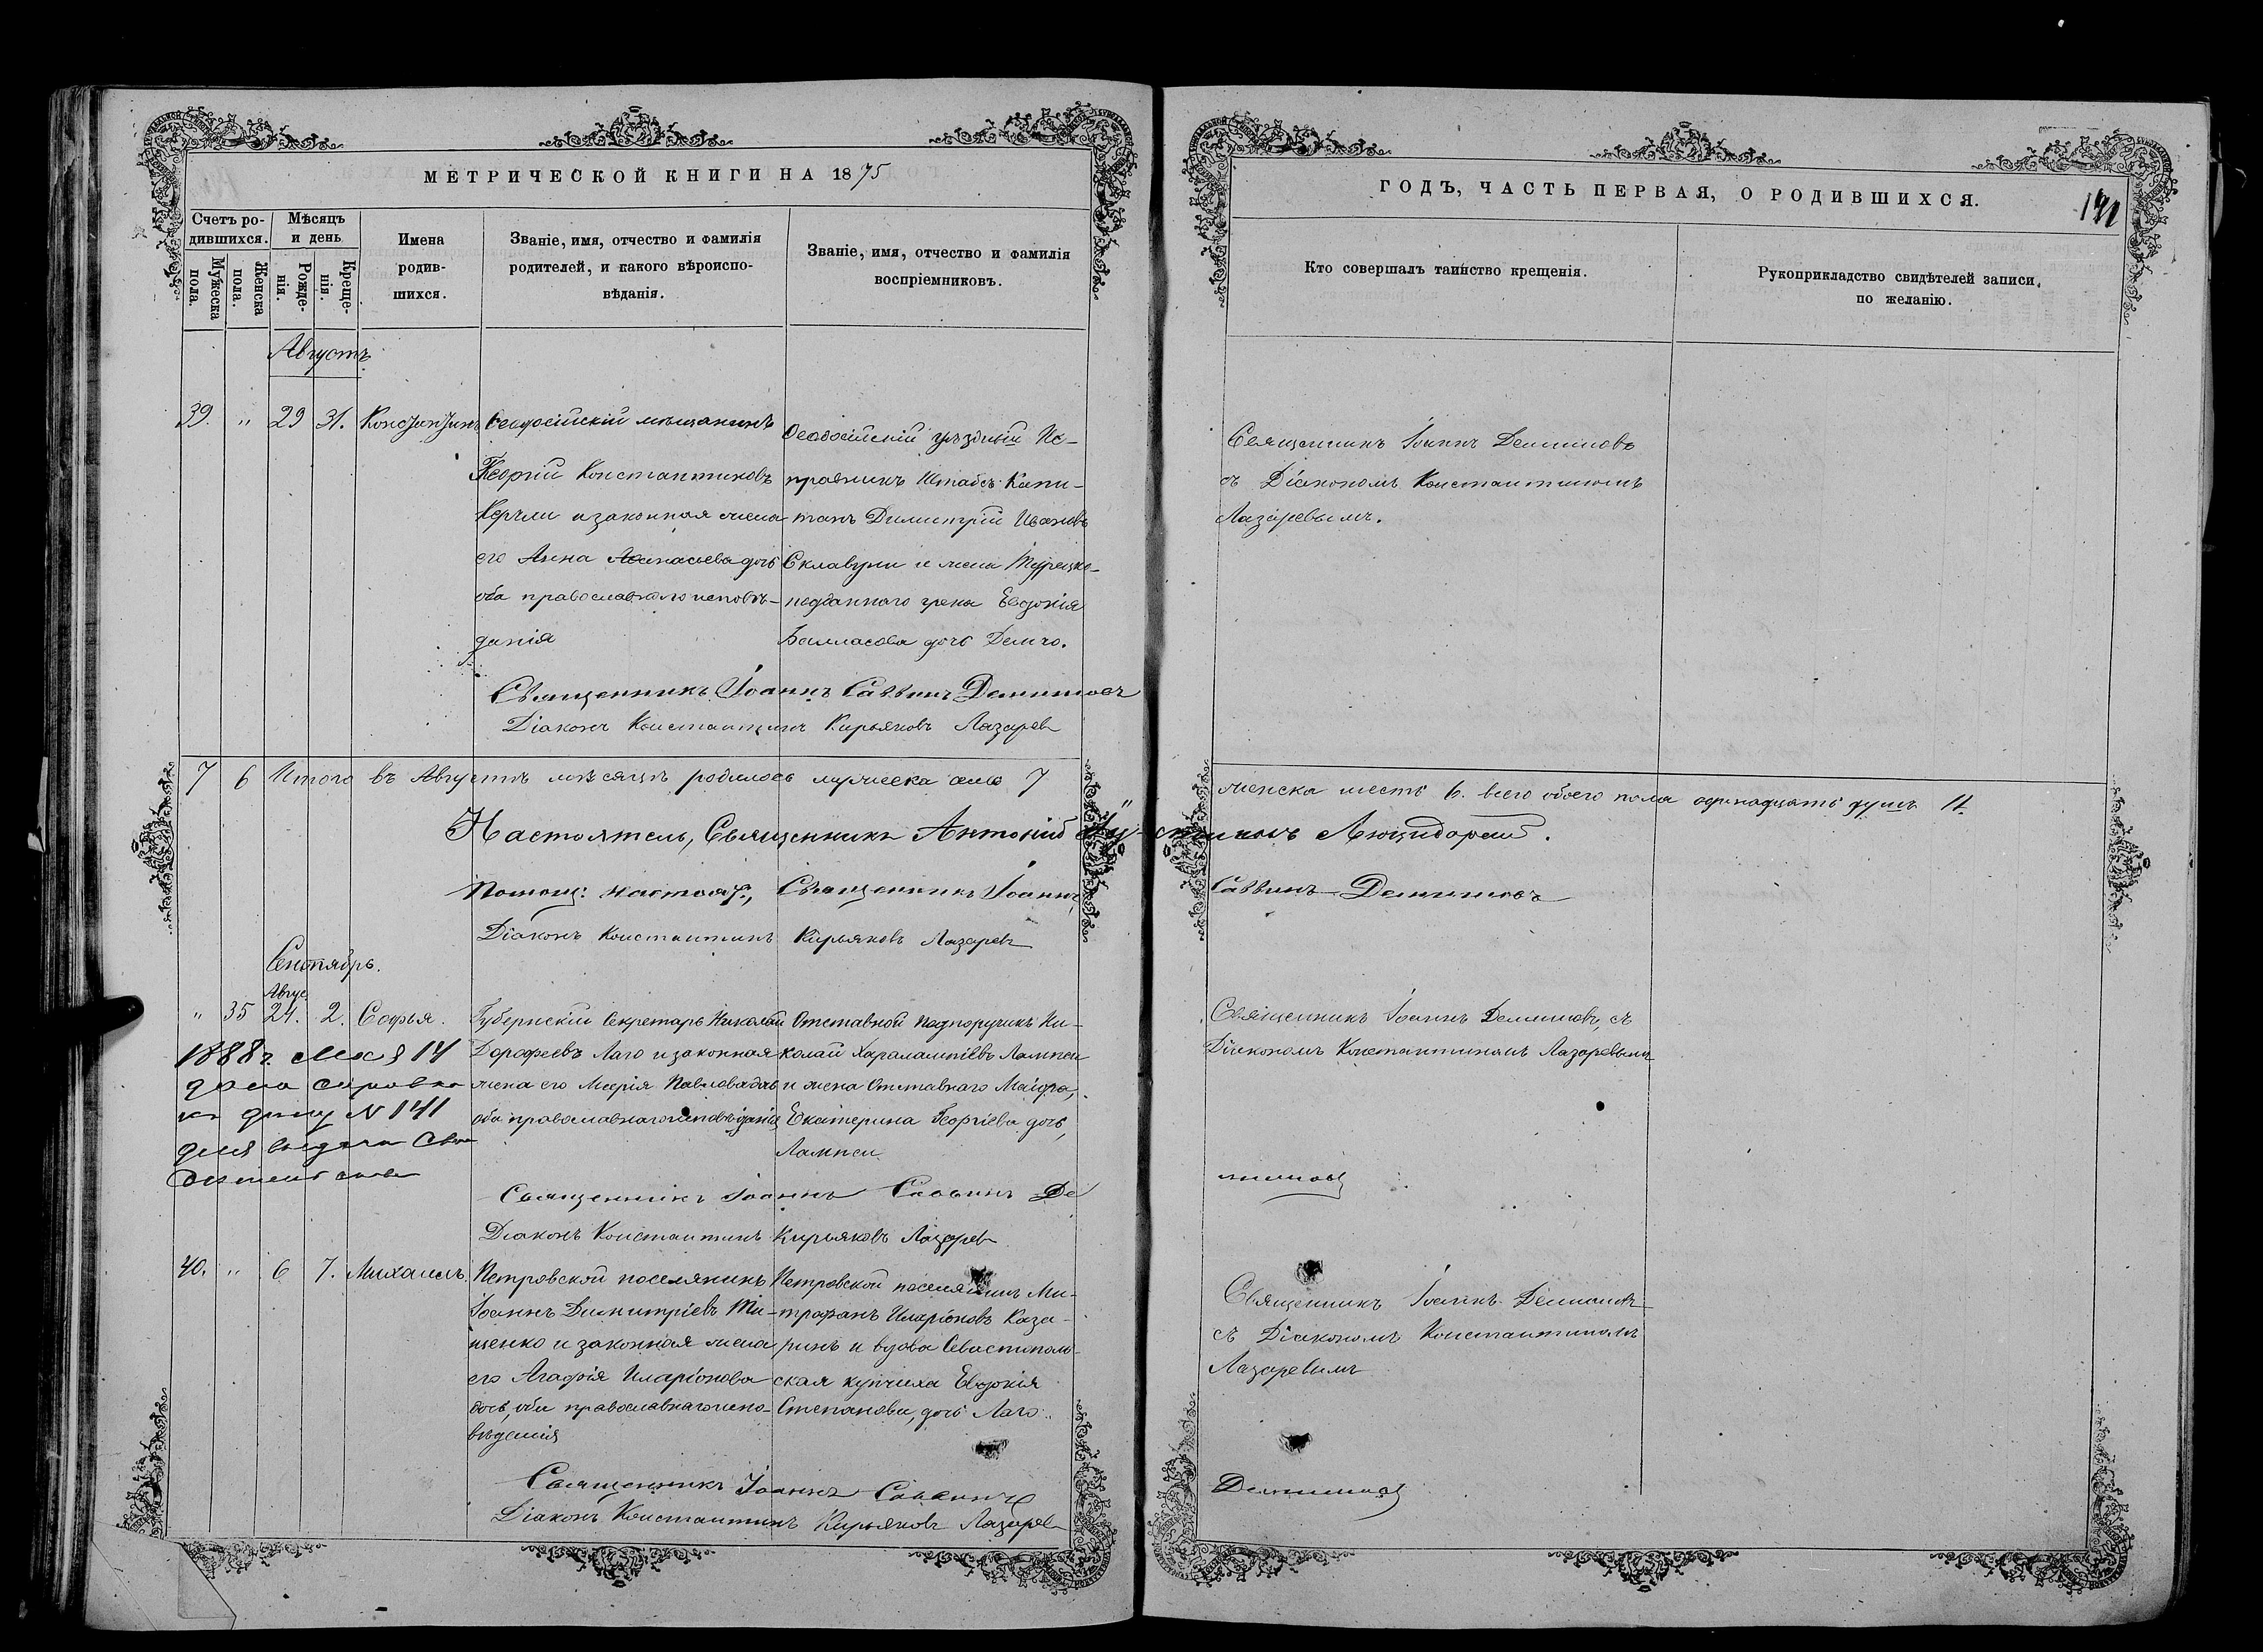 МЕТРИЧЕСКОЙ КНИГИ НА 1875
ГОДЪ, ЧАСТЬ ПЕРВАЯ, О РОДИВШИХСЯ.
Счетъ ро-
дившихся.
Мужеска
пола.
Женска
пола.
Мѣсяцъ
и день
Рожде-
нія.
Креще-
нія.
Имена
родив-
шихся.
Званіе, имя, отчество и фамилія
родителей, и какого вѣроиспо-
вѣданія.
Званіе, имя, отчество и фамилія
воспріемниковъ.
Кто совершалъ таинство крещенія.
Рукоприкладство свидѣтелей записи,
по желанію.
Августъ
39. " 29 31. Константинъ
Ѳеодосійскій мѣщанинъ
Георгій Константиновъ
и законная жена
его Анна Аѳанасьева дочь
оба православнаго исповѣ-
данія
Ѳеодосійскій уѣздный Ис-
правникъ Штабсъ-Капи-
танъ Димитрій Ивановъ
Склавуни и жена Турецко-
подданнаго грека Евдокія
дочь Демчо.
Священникъ Іоаннъ Демишовъ
съ Діакономъ Константиномъ
Лазаревымъ.
Священникъ Іоаннъ Саввинъ Демишовъ
Діаконъ Константинъ Кирьяковъ Лазаревъ
7 6 Итого въ Августѣ мѣсяцѣ родилось мужеска 7
женска шесть 6. всего обоего пола одинадцать душъ 11.
Настоятель, Священникъ Антоній
Помощ: настоят., Священникъ Іоаннъ Саввинъ Демишовъ
Діаконъ Константинъ Кирьяковъ Лазаревъ
Сентябрь.
Авгус.
" 35 24. 2. Софья.
1888г. Мая 14
дана справка
къ дѣлу N 141
для выдачи Сви
дѣтельства
Губернскій Секретарь Николай
Дорофеевъ Лаго и законная
жена его Марія Павлова дочь
оба православнаго исповѣданія
Отставной Подпоручикъ Ни-
колай Харалампіевъ Лампси
и жена Отставнаго Маіора,
Екатерина Георгіева дочь,
Лампси
Священникъ Іоаннъ Демишовъ, съ
Діакономъ Константиномъ Лазаревымъ
Священникъ Іоаннъ Саввинъ Де
мишовъ
Діаконъ Константинъ Кирьяковъ Лазаревъ
40. " 6 7. Михаилъ.
Петровской поселянинъ
Іоаннъ Димитріевъ Ти-
щенко и законная жена
его Агафія Иларіонова
дочь, оба православнаго испо-
вѣданія
Петровской поселянинъ Ми-
трофанъ Иларіоновъ Каза-
ринъ и вдова Севастополь-
ская купчиха Евдокія
Степанова, дочь Лаго.
Священникъ Іоаннъ Демишовъ
съ Діакономъ Константиномъ
Лазаревымъ
Священникъ Іоаннъ Саввинъ
Демишовъ
Діаконъ Константинъ Кирьяковъ Лазаревъ